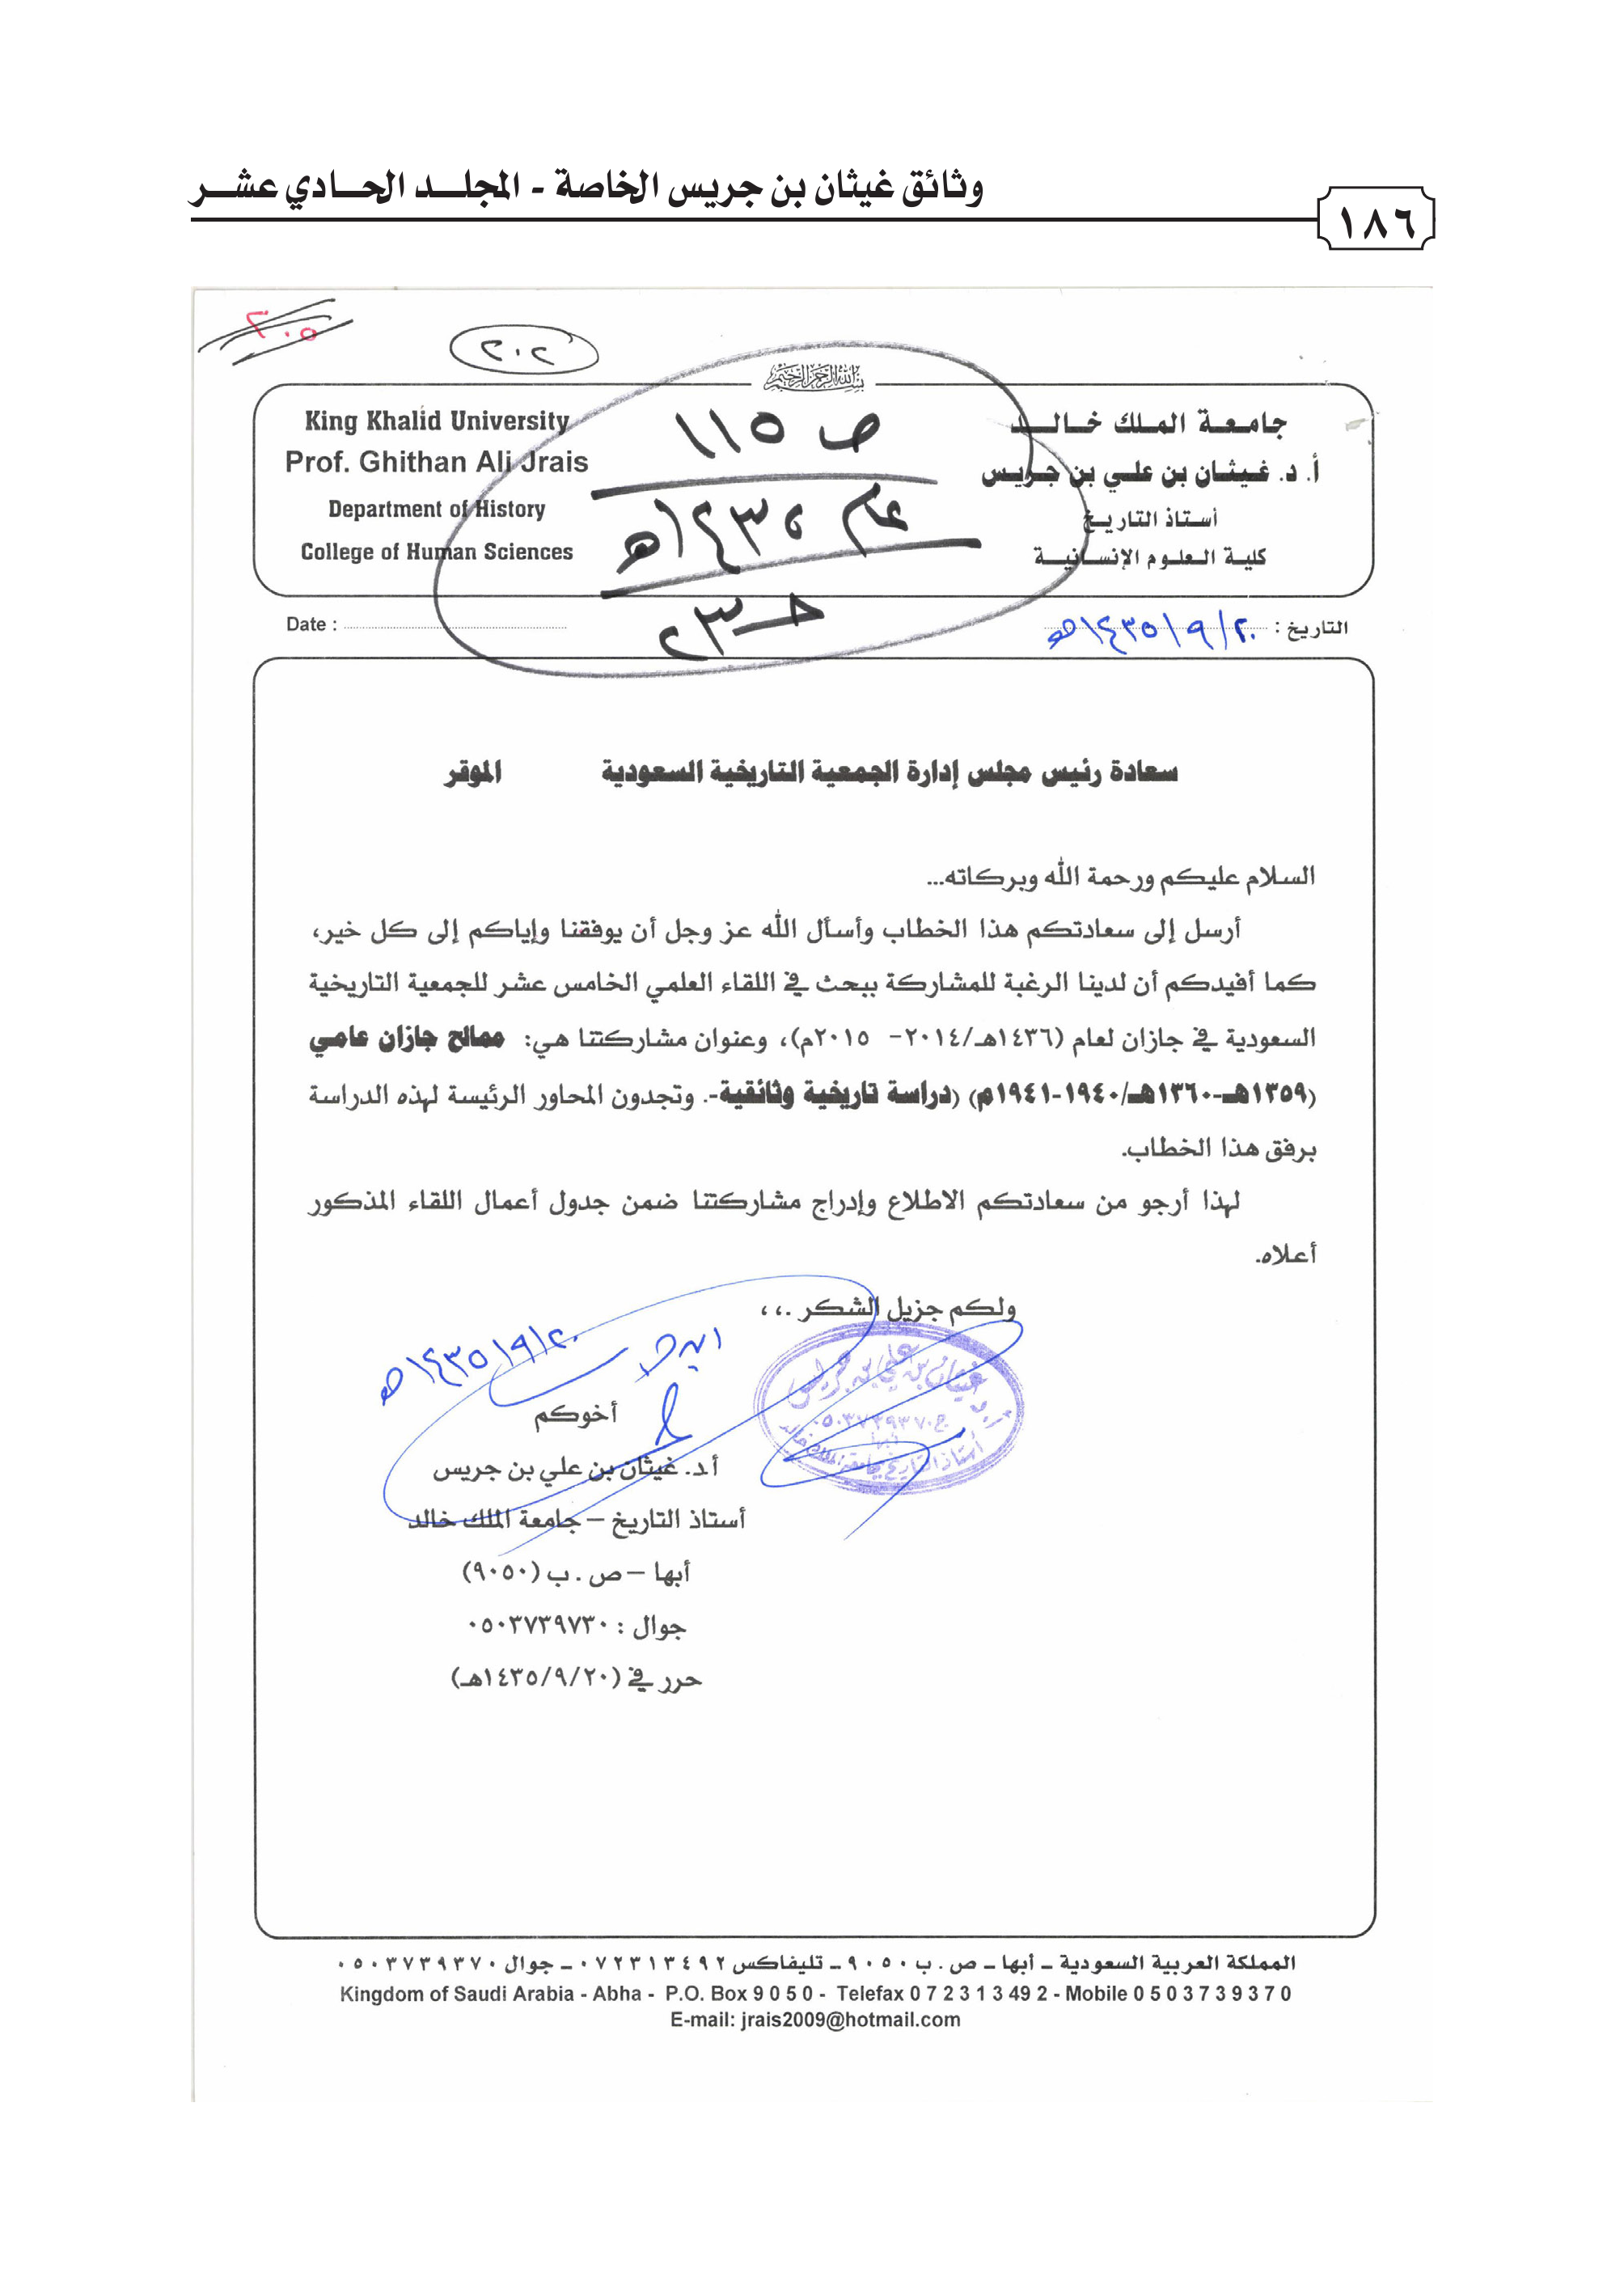 وثائق غيثان بن جريس الخاصة - المجلد الحادي عشر
١٨٦
٢٠٥
٢٠٢
بسم الله الرحمن الرحيم
جامعة الملك خالد
أ. د. غيثان بن علي بن جريس
أستاذ التاريخ
كلية العلوم الإنسانية
King Khalid University
Prof. Ghithan Ali Jrais
Department of History
College of Human Sciences
ص ١١٥
عام ١٤٣٥هـ
التاريخ : ٢٠/٩/١٤٣٥هـ
Date :
سعادة رئيس مجلس إدارة الجمعية التاريخية السعودية الموقر
السلام عليكم ورحمة الله وبركاته...
أرسل إلى سعادتكم هذا الخطاب وأسأل الله عز وجل أن يوفقنا وإياكم إلى كل خير،
كما أفيدكم أن لدينا الرغبة للمشاركة ببحث في اللقاء العلمي الخامس عشر للجمعية التاريخية
السعودية في جازان لعام (١٤٣٦هـ/٢٠١٤- ٢٠١٥م)، وعنوان مشاركتنا هي: ممالح جازان عامي
(١٣٥٩هـ-١٣٦٠هـ/١٩٤٠-١٩٤١م) (دراسة تاريخية وثائقية-. وتجدون المحاور الرئيسة لهذه الدراسة
برفق هذا الخطاب.
لهذا أرجو من سعادتكم الاطلاع وإدراج مشاركتنا ضمن جدول أعمال اللقاء المذكور
أعلاه.
ولكم جزيل الشكر .،،
٢٠/٩/١٤٣٥هـ
أخوكم
أ.د. غيثان بن علي بن جريس
أستاذ التاريخ – جامعة الملك خالد
أبها – ص . ب (٩٠٥٠)
جوال : ٠٥٠٣٧٣٩٧٣٠
حرر في (٢٠/٩/١٤٣٥هـ)
أ.د. غيثان بن علي بن جريس
ج.٠٥٠٣٧٣٩٣٧٠
أبها
أستاذ التاريخ بجامعة الملك خالد
المملكة العربية السعودية – أبها – ص . ب ٩٠٥٠ – تليفاكس ٠٧٢٣١٣٤٩٢ – جوال ٠٥٠٣٧٣٩٣٧٠
Kingdom of Saudi Arabia - Abha - P.O. Box 9 0 5 0 - Telefax 0 7 2 3 1 3 49 2 - Mobile 0 5 0 3 7 3 9 3 7 0
E-mail: jrais2009@hotmail.com